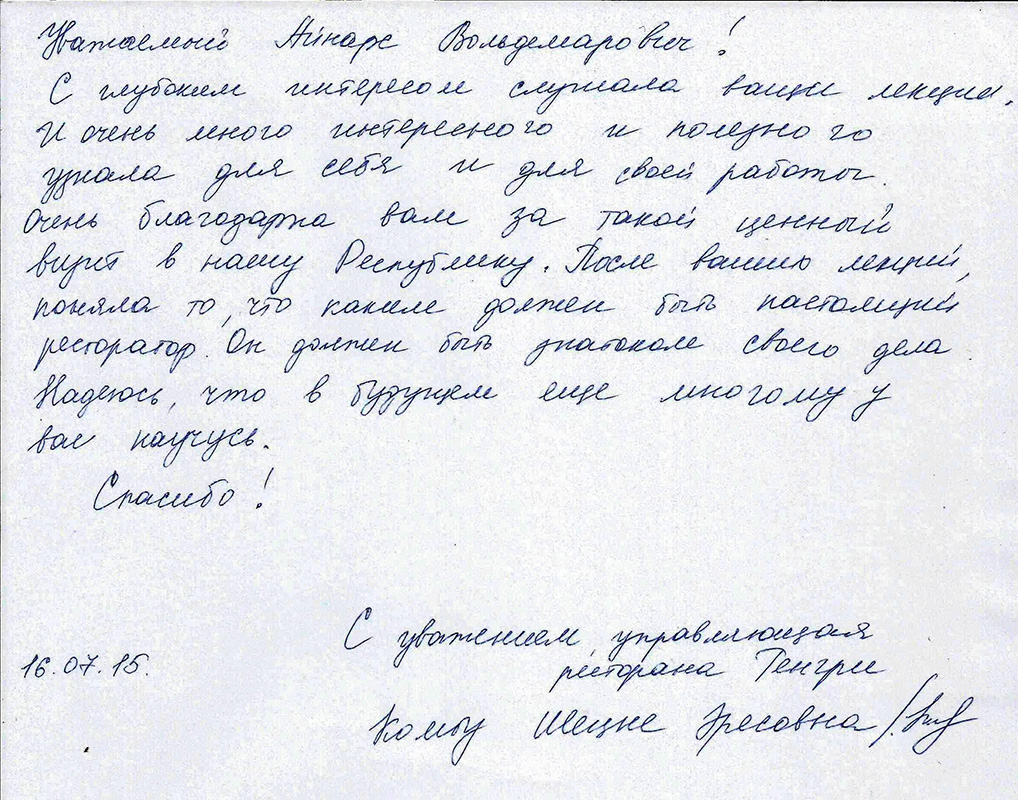 Уважаемый Айнарс Вольдемарович!
С глубоким интересом слушала ваши лекции.
И очень много интересного и полезного
узнала для себя и для своей работы.
Очень благодарна вам за такой ценный
визит в нашу Республику. После ваших лекций,
поняла то, что каким должен быть настоящий
ресторатор. Он должен быть знатоком своего дела
Надеюсь, что в будущем еще многому у
вас научусь.
Спасибо!
С уважением, управляющая
16.07.15. ресторана Тенгри
Шецне Эресовна